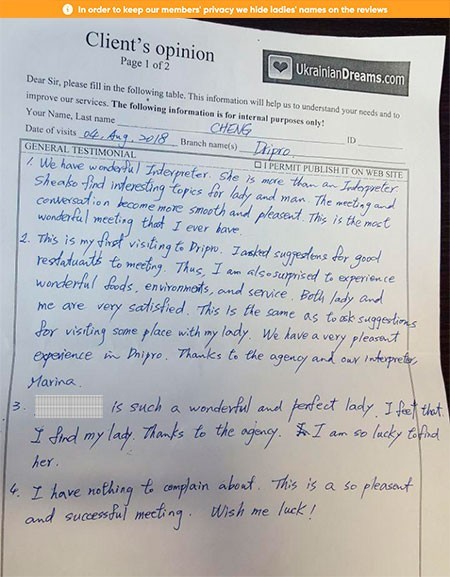 In order to keep our members' privacy we hide ladies' names on the reviews
Client's opinion
Page 1 of 2
UkrainianDreams.com
Dear Sir, please fill in the following table. This information will help us to understand your needs and to
improve our services. The following information is for internal purposes only!
Your Name, Last name CHENG ID
Date of visits 04. Aug. 2018 Branch name(s) Dnipro
GENERAL TESTIMONIAL I PERMIT PUBLISH IT ON WEB SITE
1. We have wonderful Interpreter. She is more than an Interpreter.
She also find interesting topics for lady and man. The meeting and
conversation become more smooth and pleasent. This is the most
wonderful meeting that I ever have.
2. This is my first visiting to Dnipro. I asked suggestens for good
restatuants to meeting. Thus, I am also surprised to experience
wonderful foods, environments, and service. Both lady and
me are very satisfied. This is the same as to ask suggestions
for visiting some place with my lady. We have a very pleasent
experience in Dnipro. Thanks to the agency and our interpreter,
Marina.
3. Is such a wonderful and perfect lady. I feel that
I find my lady. Thanks to the agency. I am so lucky to find
her.
4. I have nothing to complain about. This is a so pleasent
and successful meeting. Wish me luck!